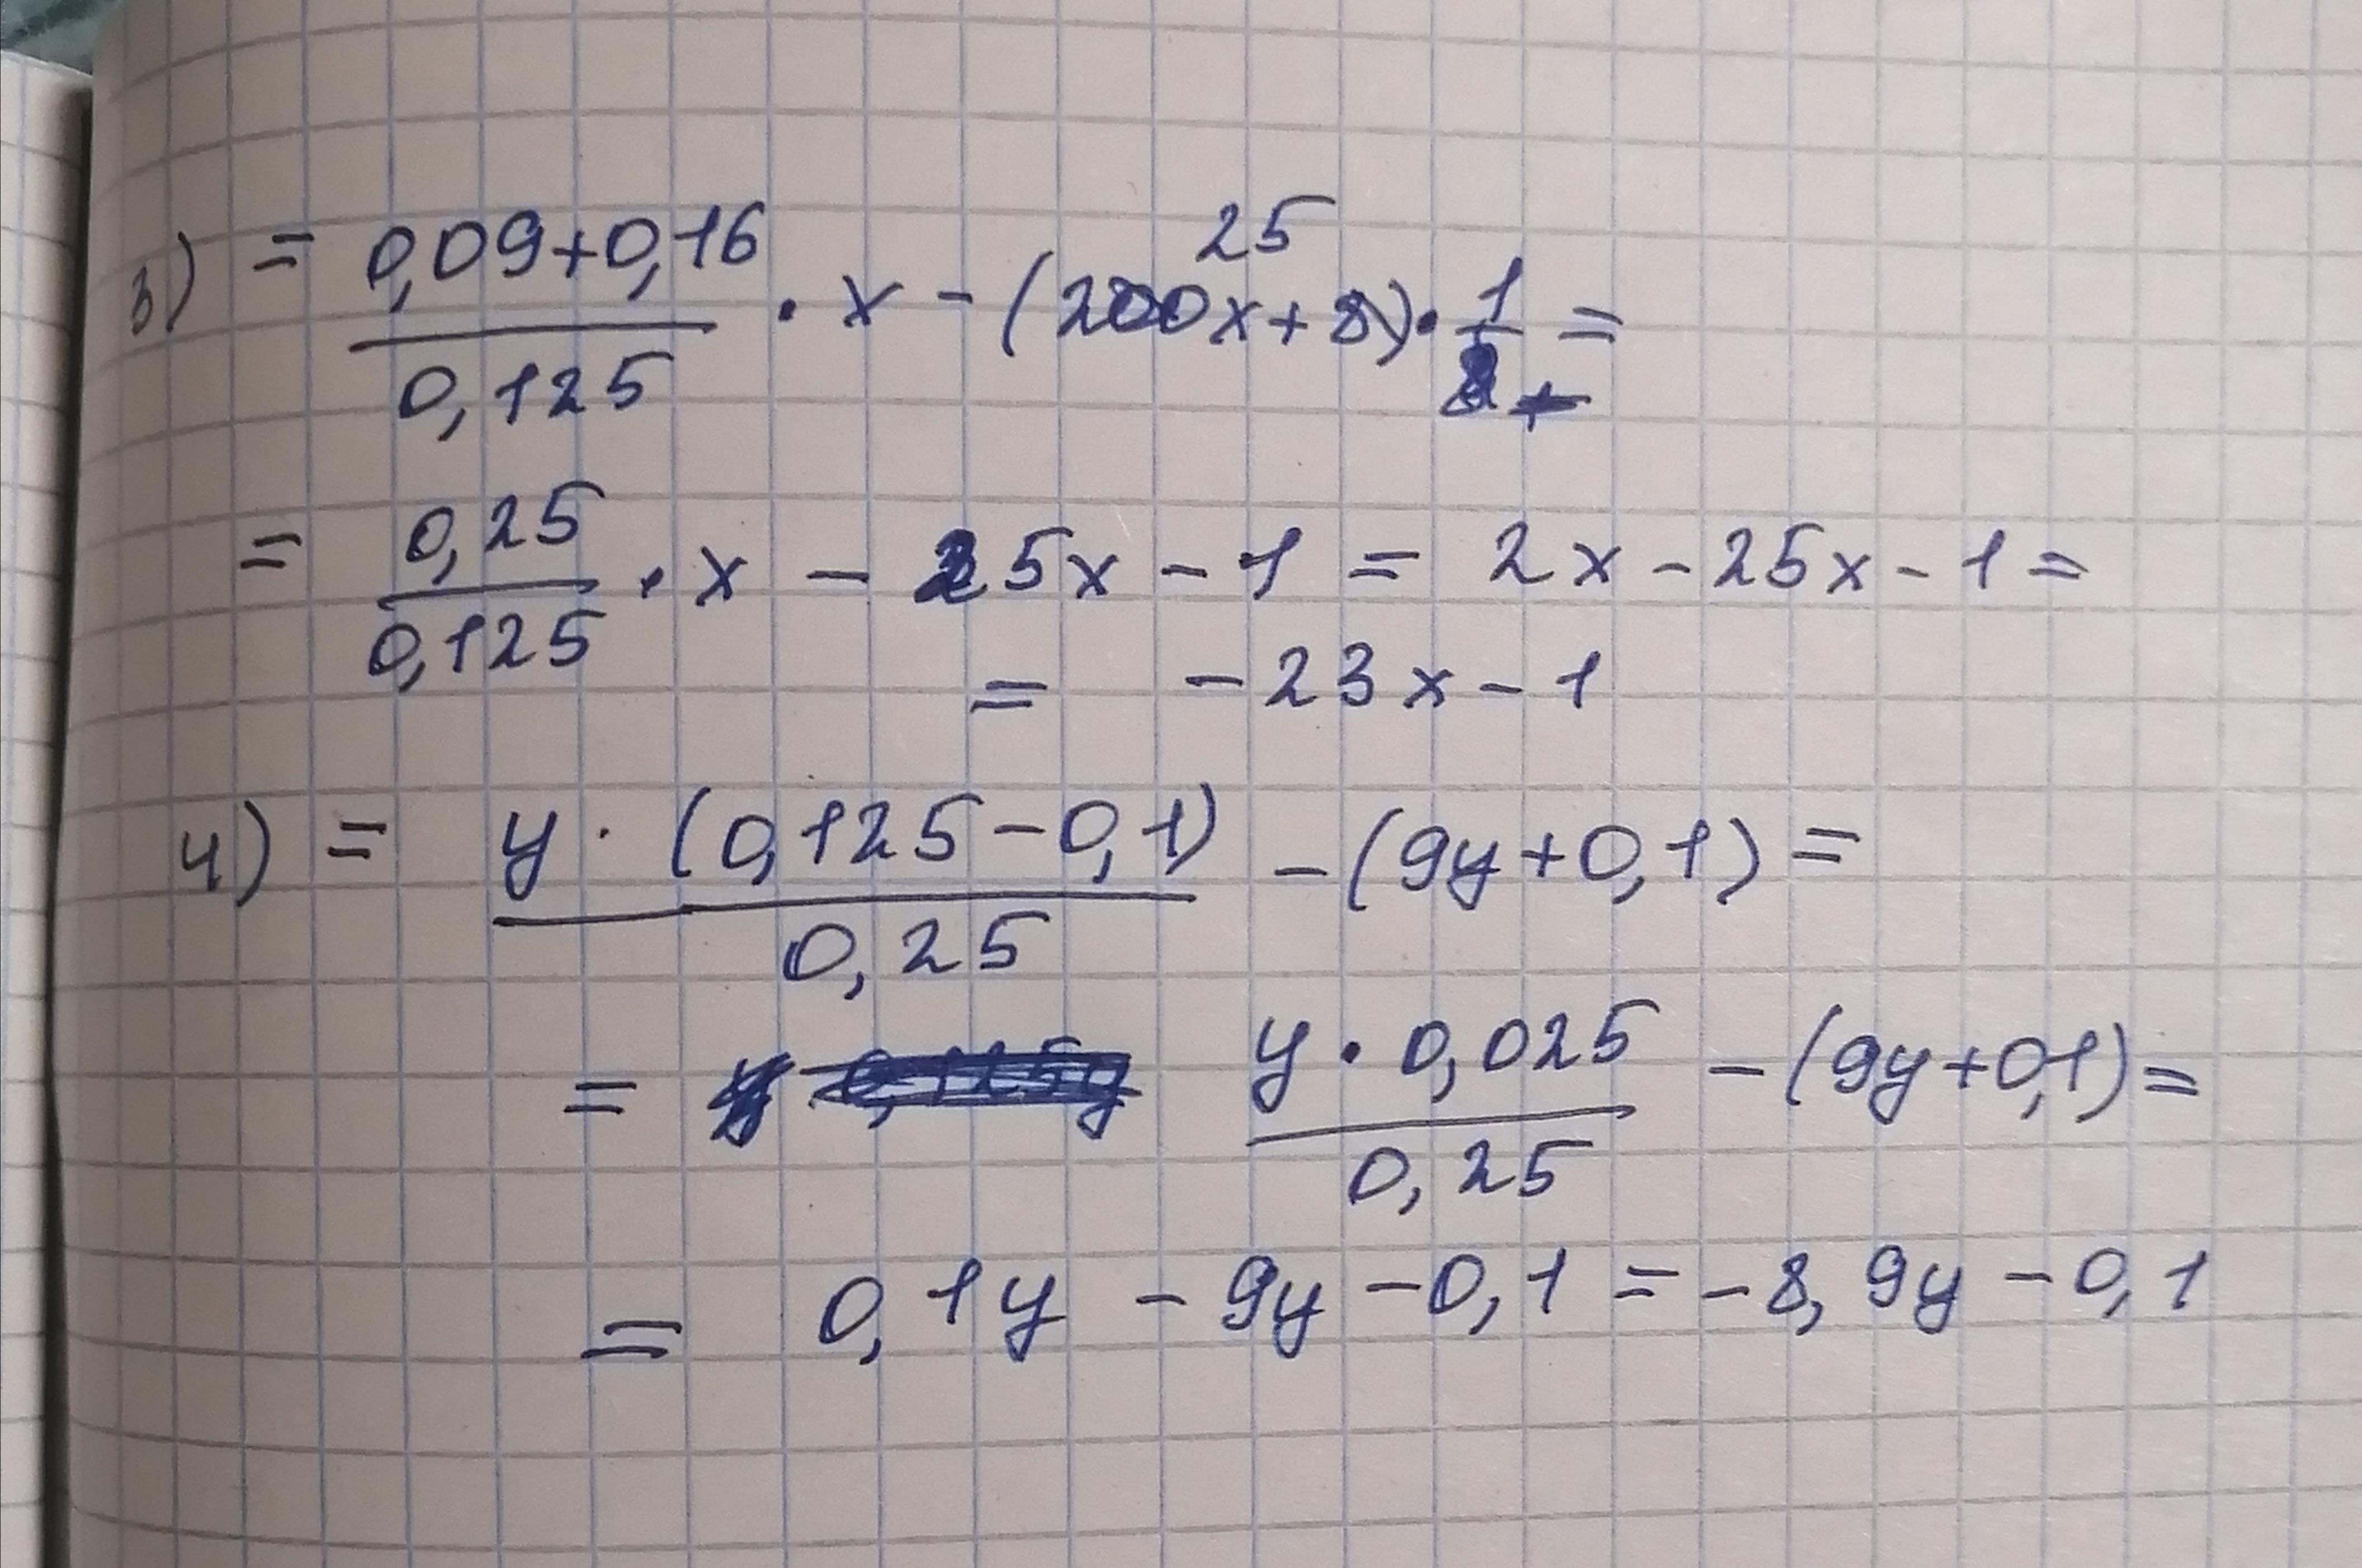 3) = (0,09+0,16)/0,125 · x - (200x+8) · 1/8 =
25
= 0,25/0,125 · x - 25x - 1 = 2x - 25x - 1 =
= -23x - 1
4) = y · (0,125-0,1)/0,25 - (9y+0,1) =
= y · 0,025/0,25 - (9y+0,1) =
= 0,1y - 9y - 0,1 = -8,9y - 0,1